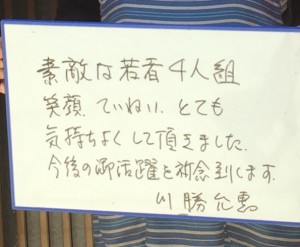 素敵な若者4人組
笑顔、ていねい、とても
気持ちよくして頂きました。
今後の御活躍を祈念致します。
川勝允恵